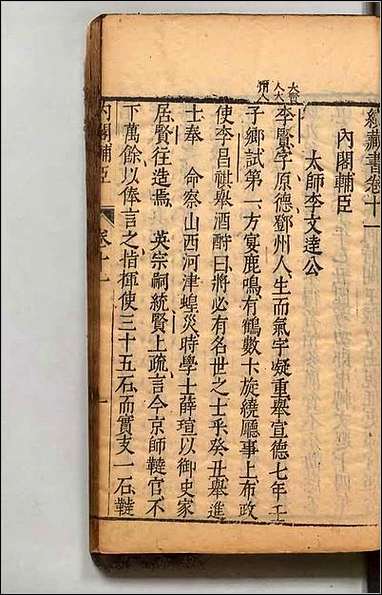 續藏書卷十一
內閣輔臣
太師李文達公
李賢字原德鄧州人生而氣宇凝重舉宣德七年壬
子鄉試第一方宴鹿鳴有鶴數十旋繞廳事上布政
使李昌祺舉酒酹曰將必有名世之士乎癸丑舉進
士奉 命察山西河津蝗災時學士薛瑄以御史家
居賢往造焉 英宗嗣統賢上疏言今京師韃官不
下萬餘以俸言之指揮使三十五石而實支一石韃
內閣輔臣 卷十一 一